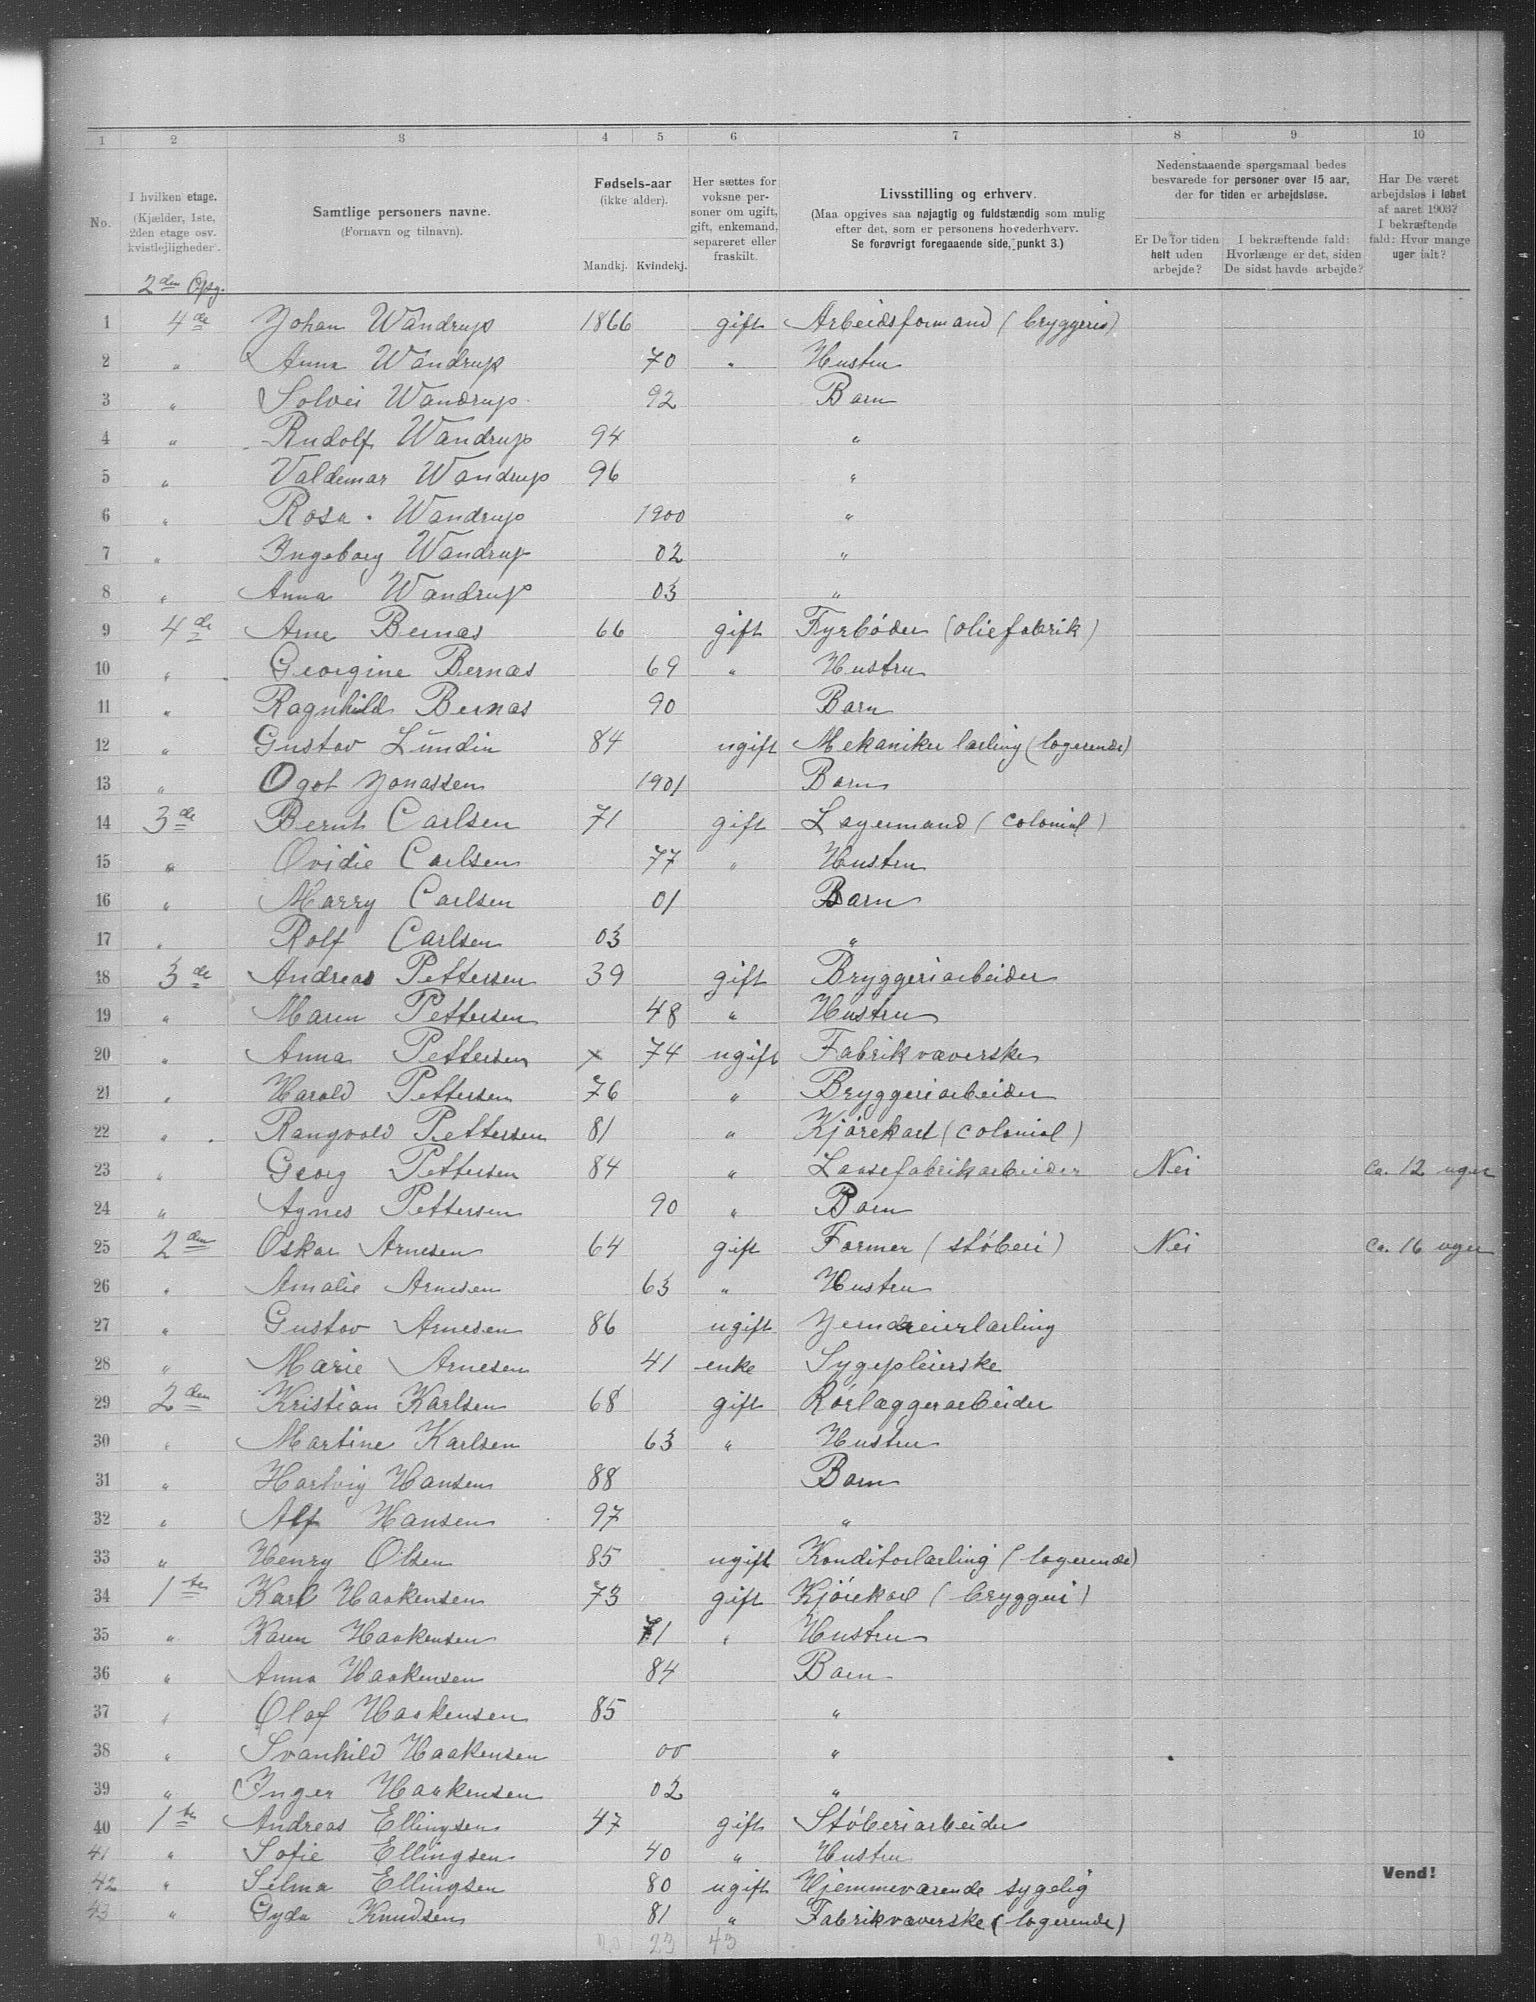 1 2 3 4 5 6 7 8 9 10
No. I hvilken etage. (Kjælder, 1ste, 2den etage osv. kvistlejligheder). Samtlige personers navne. (Fornavn og tilnavn). Fødsels-aar (ikke alder). Mandkj. Kvindekj. Her sættes for voksne personer om ugift, gift, enkemand, separeret eller fraskilt. Livsstilling og erhverv. (Maa opgives saa nøjagtig og fuldstændig som mulig efter det, som er personens hovederhverv. Se forøvrigt foregaaende side, punkt 3.) Nedenstaaende spørgsmaal bedes besvarede for personer over 15 aar, der for tiden er arbejdsløse. Er De for tiden helt uden arbejde? I bekræftende fald: Hvorlænge er det, siden De sidst havde arbejde? Har De været arbejdsløs i løbet af aaret 1903? I bekræftende fald: Hvor mange uger ialt?
2den Opg.
1 4de Johan Wandrup 1866 gift Arbeidsformand (bryggeri)
2 " Anna Wandrup 70 " Hustru
3 " Solvei Wandrup 92 Barn
4 " Rudolf Wandrup 94 "
5 " Valdemar Wandrup 96 "
6 " Rosa Wandrup 1900 "
7 " Ingeborg Wandrup 02 "
8 " Anna Wandrup 03 "
9 4de Arne Bernas 66 gift Fyrbøder (oliefabrik)
10 " Georgine Bernas 69 " Hustru
11 " Ragnhild Bernas 90 Barn
12 " Gustav Lundin 84 ugift Mekaniker lærling (logerende)
13 " Ogot Jonassen 1901 Barn
14 3de Bernt Carlsen 71 gift Lagermand (colonial)
15 " Ovidie Carlsen 77 " Hustru
16 " Marry Carlsen 01 Barn
17 " Rolf Carlsen 03 "
18 3de Andreas Pettersen 39 gift Bryggeriarbeider
19 " Maren Pettersen 48 " Hustru
20 " Anna Pettersen x 74 ugift Fabrikvæverske
21 " Harald Pettersen 76 " Bryggeriarbeider
22 " Rangvald Pettersen 81 " Kjørekarl (colonial)
23 " Georg Pettersen 84 " Laasefabrikarbeider Nei ca. 12 uger
24 " Agnes Pettersen 90 " Barn
25 2den Oskar Arnesen 64 gift Former (støberi) Nei ca. 16 uger
26 " Amalie Arnesen 63 " Hustru
27 " Gustav Arnesen 86 ugift Jerndreierlærling
28 " Marie Arnesen 41 enke Sygepleierske
29 2den Kristian Karlsen 68 gift Rørlæggerarbeider
30 " Martine Karlsen 63 " Hustru
31 " Hartvig Hansen 88 Barn
32 " Alf Hansen 97 "
33 " Henry Olsen 85 ugift Konditorlærling (logerende)
34 1ste Karl Haakensen 73 gift Kjørekarl (bryggeri)
35 " Karen Haakensen 71 " Hustru
36 " Anna Haakensen 84 Barn
37 " Olaf Haakensen 85 "
38 " Svanhild Haakensen 00 "
39 " Inger Haakensen 02 "
40 1ste Andreas Ellingsen 47 gift Støberiarbeider
41 " Sofie Ellingsen 40 " Hustru
42 " Selma Ellingsen 80 ugift Hjemmeværende sygelig
43 " Gyda Knudsen 81 " Fabrikvæverske (logerende)
Vend!
20 23 43